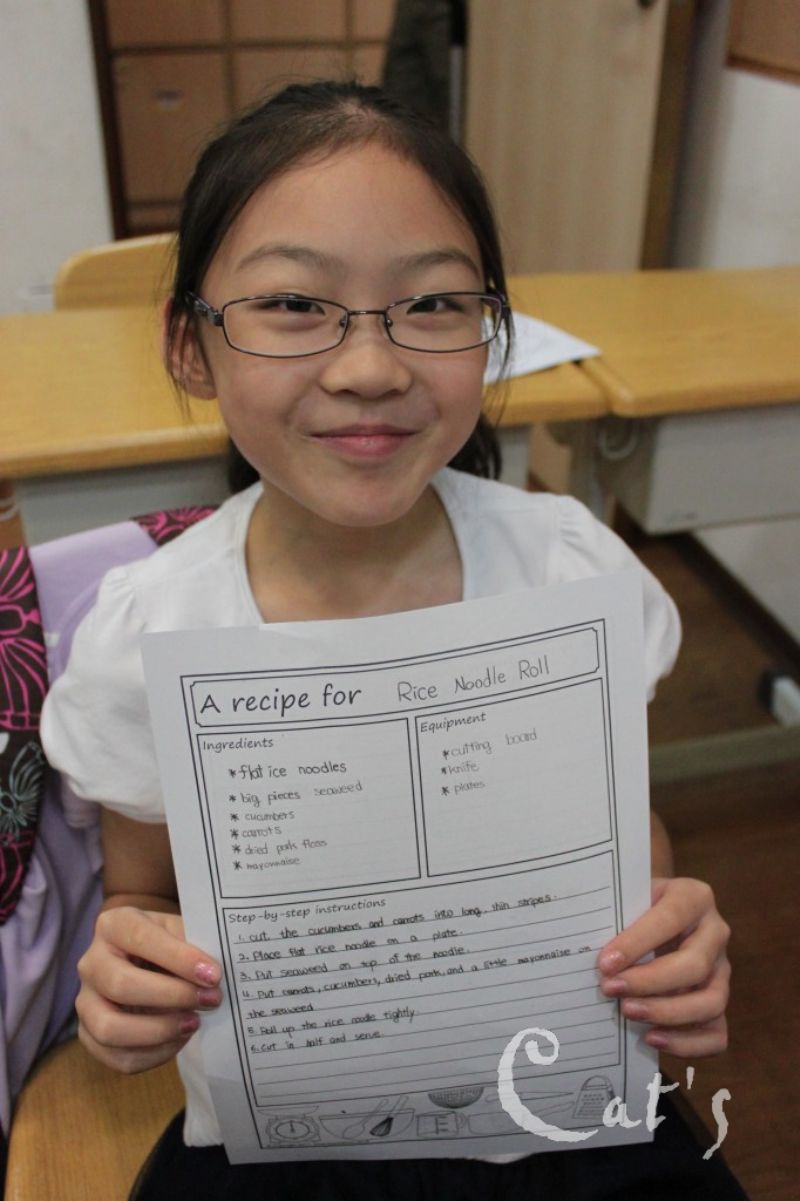 A recipe for Rice Noodle Roll
Ingredients
* flat ice noodles
* big pieces seaweed
* cucumbers
* carrots
* dried pork floss
* mayonnaise
Equipment
* cutting board
* knife
* plates
Step-by-step instructions
1. cut the cucumbers and carrots into long, thin stripes.
2. Place flat rice noodle on a plate.
3. Put seaweed on top of the noodle.
4. Put carrots, cucumbers, dried pork, and a little mayonnaise on
the seaweed
5. Roll up the rice noodle tightly.
6. Cut in half and serve.
Cat's